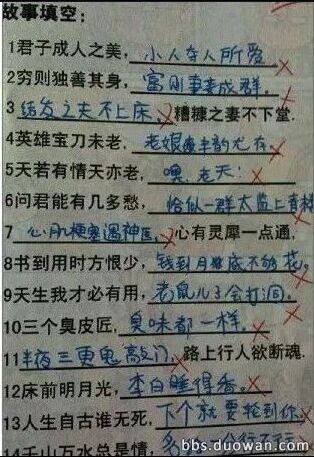 故事填空：
1君子成人之美，小人夺人所爱
2穷则独善其身，富则妻妾成群。
3结发之夫不上床，糟糠之妻不下堂.
4英雄宝刀未老，老娘风韵尤存。
5天若有情天亦老，噢，老天！
6问君能有几多愁，恰似一群太监上青楼
7心肌梗塞遇神医，心有灵犀一点通，
8书到用时方恨少，钱到月底不够花。
9天生我才必有用，老鼠儿子会打洞。
10三个臭皮匠，臭味都一样。
11半夜三更鬼敲门，路上行人欲断魂.
12床前明月光，李白睡得香。
13人生自古谁无死，下个就要轮到你
14千山万水总是情，
bbs.duowan.com